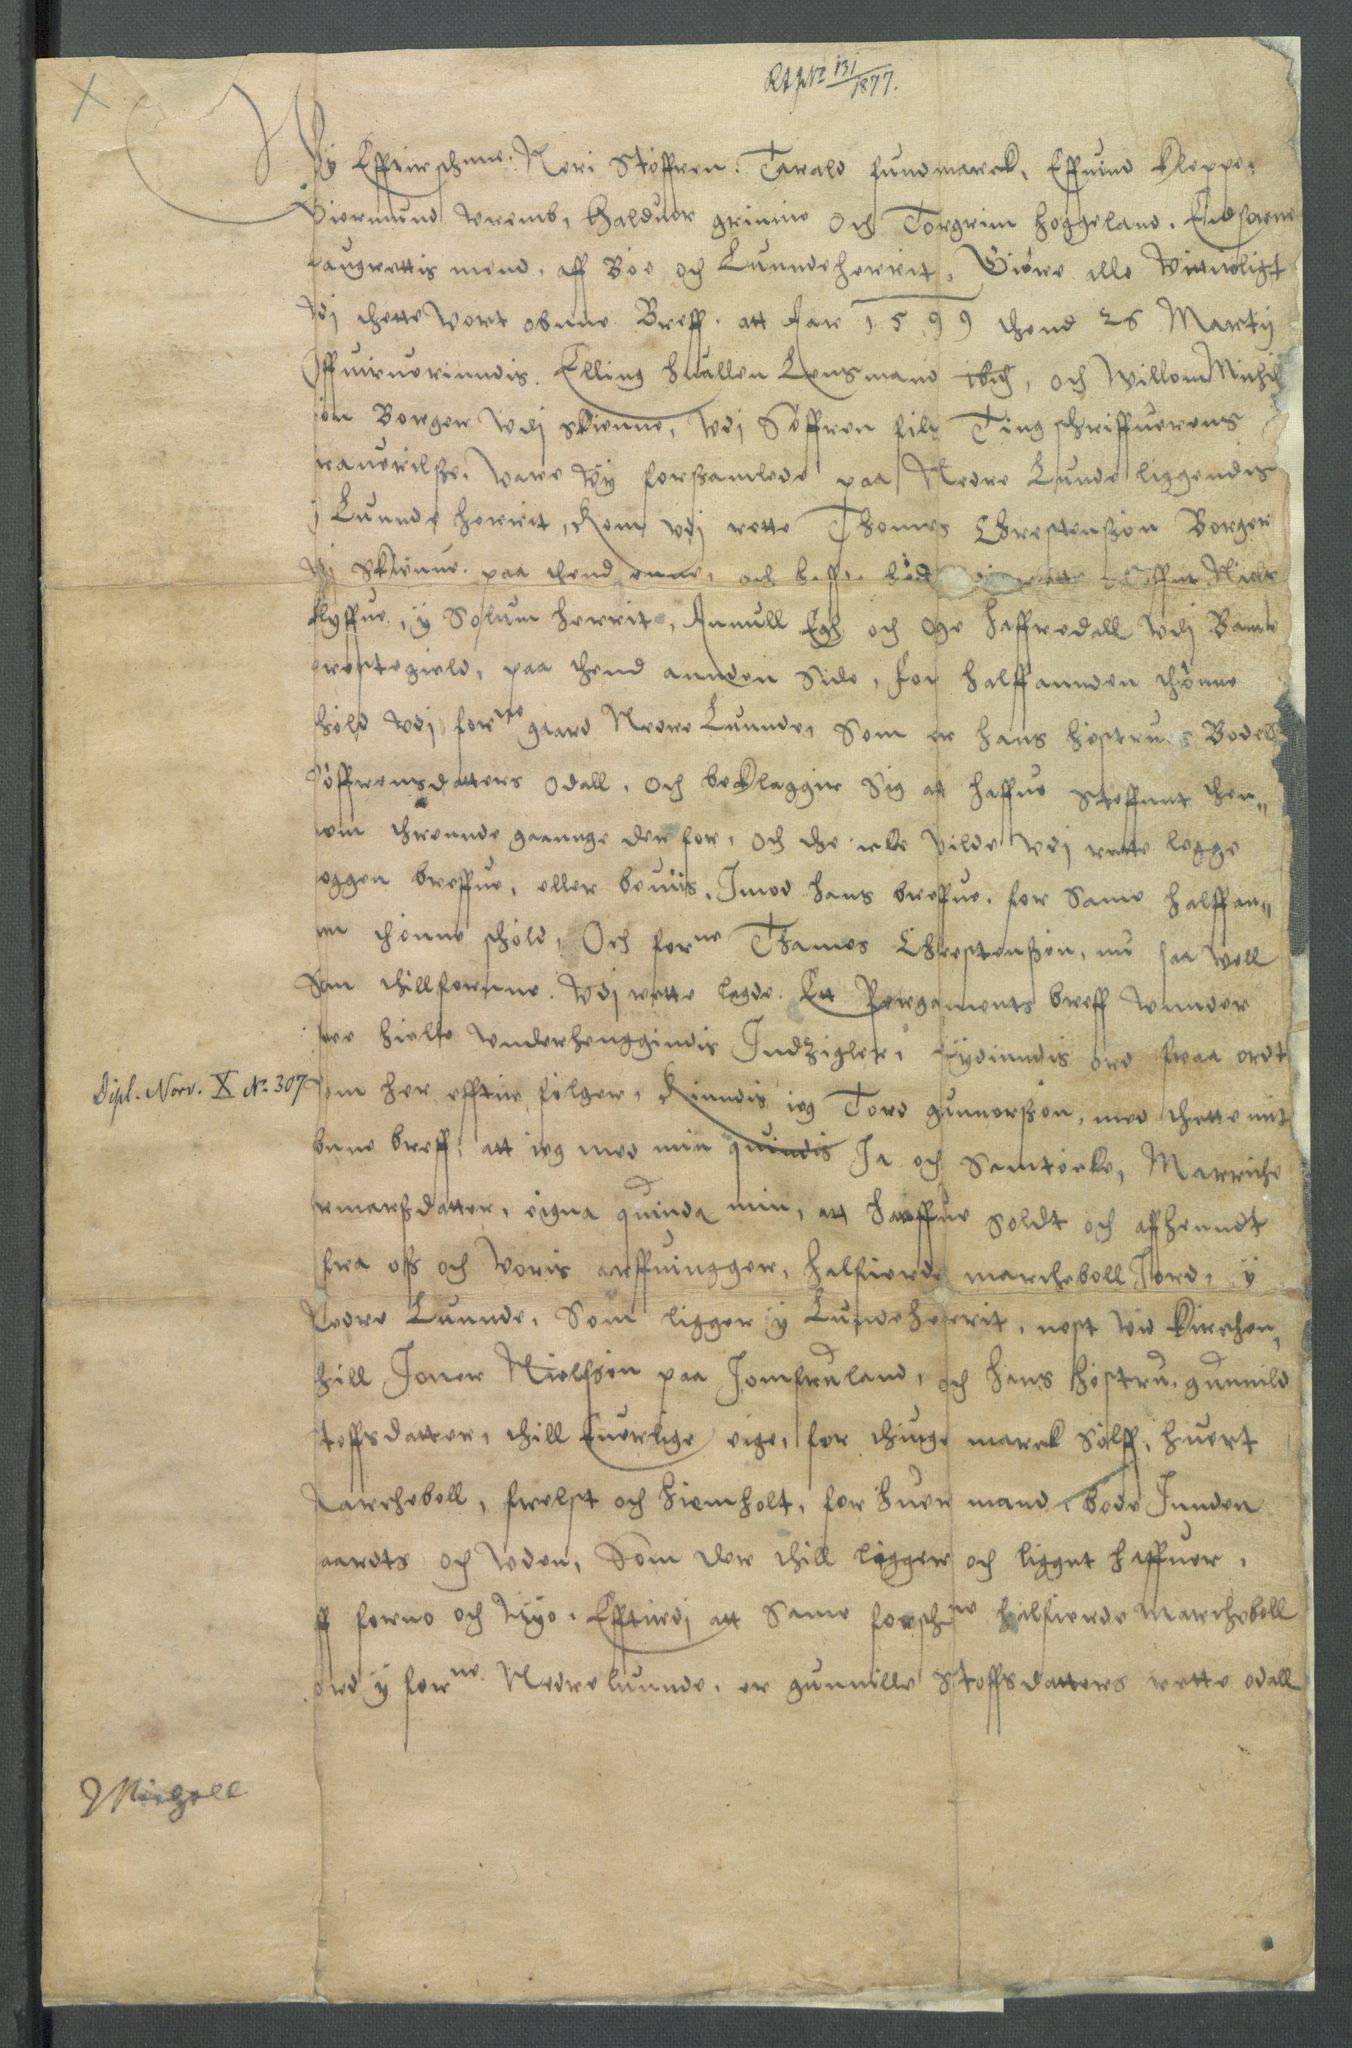 RA JNr 131/1877.
Wy Effterschne. Neri Støffren. Tarald sundmarck. Effuind Kleppe.
Viermund vremb, Halduor grinine Och Torgrim hoggeland. Eidsorne
Laugrettis mend, aff Bøe och Lunndeherrit, Giøre alle Vitterligt
Vdj thette wort obnne Breff. att Aar 1599 thend 26 Marty
Offueruerinndis. Elling huallen Lensmand ibid, och Willom Michel
søn Borger Vdj skienne, Vdj Søffren fils Ting schriffuerens
frauerilße, Vare Wy forßamlede paa Nedre Lunde liggendis
j Lunnde herrit, Kom vdj rette Thomes Chrestenßøn Borger
Vdj Skienne. paa thend enne, och haffde hid steffnt Niels
klyffue, y Solum herrit, Anundt Egh och Oge haffredall Vdj Bamble
prestegield, paa thend annden Side, for halffannden thønne
skyld Vdj forne gaard Nedre Lunnde, Som er hans høstrues Bodell
Søffrensdatters odall, och beklagger Sig att haffue Steffnnt then„
nom thrennde gaannge der for, och the icke vilde Vdj rette legge
noggen breffue, eller beuiis, Imod hans breffue, for Same halffan„
en thønne schöld, Och forne Thames Chrestenßøn, nu saa well
Som thillforinne. Vdj rette lagde. Ett Pergaments breff Wnnder
tre hielle Wnderhenggindis Indzigler, Lydinndis ord fraa ordt
Som her efftir følger, Kinndis ieg Tord gunnorßøn, med thette mit
obnne breff, att ieg med min quindis Ja och Samtöcke, Marriche
ormarßdatter, eigna quinda min, att haffue Soldt och affhenndt
fra oß och Voris arffuingger, halfierde marcheboll Jord, y
Nedre Lunnde, Som ligger y Lundeherrit, nest Vid Kirchen,
thill Joner Nielssøn paa Jomfruland, och hans høstru gunnild
Stoffsdatter, thill Euerlige eige, for thiuge marck Sølff, huert
Marcheboll, frelst och hiemholt, for huer mand, bode Innden
gaardts och Vden, Som der thill ligger och liggett haffuer,
aff forno och Nyo. Efftirdj att Same forschne halfierde Marcheboll
Jord y forne Nedre lunnde, er gunnille Stoffsdatters rette odall
Dipl. Norv. X No. 307